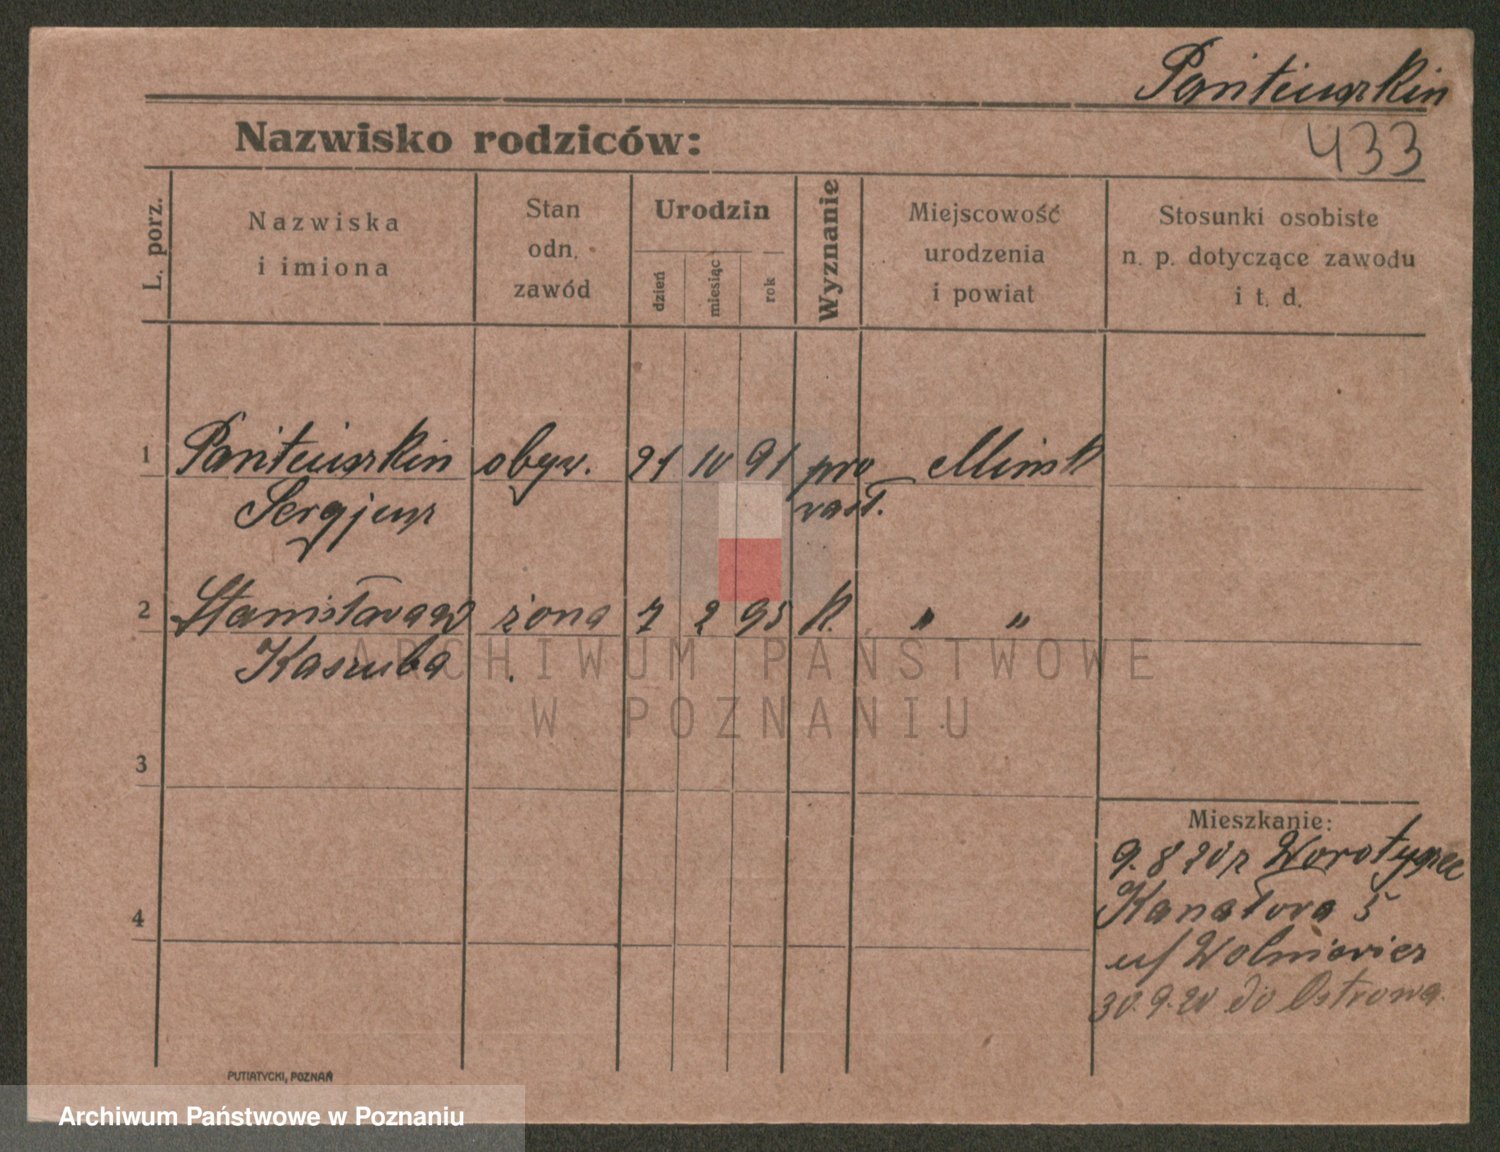 Panteuszkin
433
Nazwisko rodziców:
L. porz.
Nazwiska
i imiona
Stan
odn.
zawód
Urodzin
dzień
miesiąc
rok
Wyznanie
Miejscowość
urodzenia
i powiat
Stosunki osobiste
n. p. dotyczące zawodu
i t. d.
1 Panteuszkin obyw. 21 10 91 pro Minsk
Sergjusz vast.
2 Stanisława żona 7 2 95 k. " "
Kaszuba
3
Mieszkanie:
9. 8 20 z
4 Kanałowa 5
u/ Wolniewicz
30. 9. 20 do Ostrowa.
PUTIATYCKI, POZNAŃ
ARCHIWUM PAŃSTWOWE
W POZNANIU
Archiwum Państwowe w Poznaniu